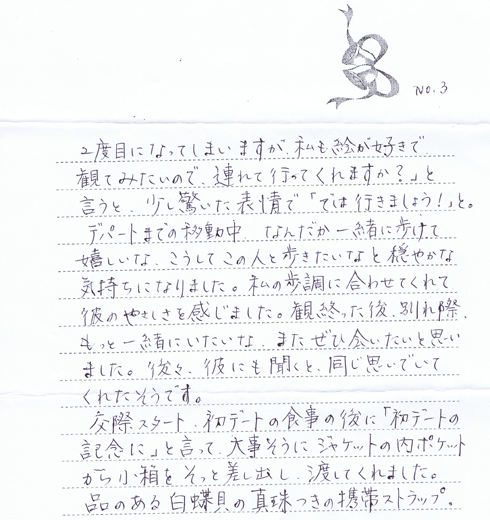 No.3
2度目になってしまいますが、私も絵が好きで
観てみたいので、連れて行ってくれますか?」と
言うと、少し驚いた表情で「では行きましょう!」と。
デパートまでの移動中、なんだか一緒に歩けて
嬉しいな、こうしてこの人と歩きたいなと穏やかな
気持ちになりました。私の歩調に合わせてくれて
彼のやさしさを感じました。観終った後、別れ際、
もっと一緒にいたいな、またぜひ会いたいと思い
ました。後々、彼にも聞くと、同じ思いでいて
くれたそうです。
交際スタート、初デートの食事の後に「初デートの
記念に」と言って、大事そうにジャケットの内ポケット
から小箱をそっと差し出し、渡してくれました。
品のある白蝶貝の真珠つきの携帯ストラップ。